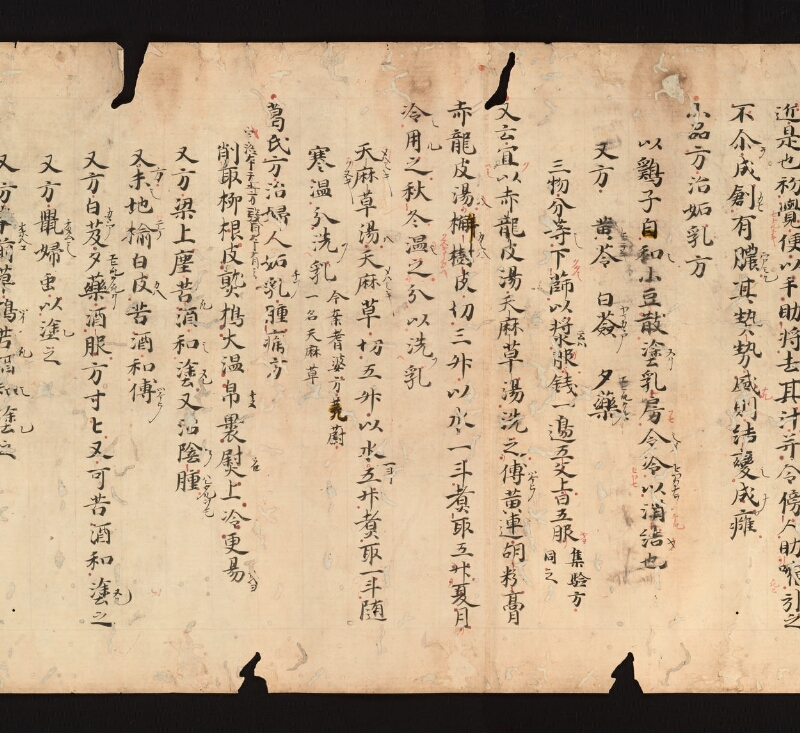 近是也初覺便以手助捋去其汁并令傍人助嗍引之
不尒成創有膿其熱勢盛則結變成癰
小品方治妬乳方
以鷄子白和小豆散塗乳房令冷以消結也
又方 黄芩 白薟 夕藥
三物分等下篩以漿服錢一邊五文上日五服 集驗方同之
又云宜以赤龍皮湯天麻草湯洗之傅黄連胡粉膏
赤龍皮湯槲樹皮切三升以水一斗煮取五升夏月
冷用之秋冬温之分以洗乳
天麻草湯天麻草切五升以水五升煮取一斗随
寒温分洗乳 今案耆婆方茺蔚一名天麻草
葛氏方治婦人妬乳腫痛方
削取柳根皮熟擣火温帛裹熨上冷更易
又方梁上塵苦酒和塗又治陰腫
又方地榆白皮苦酒和傅
又方白芨夕藥酒服方寸匕又可苦酒和塗之
又方鼠婦虫以塗之
又方車前草搗苦酒和塗之